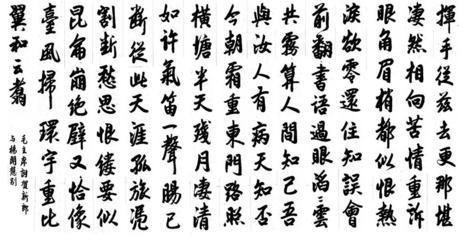 揮手從茲去更那堪
淒然相向苦情重訴
眼角眉梢都似恨熱
淚欲零還住知誤會
前翻書語過眼滔〻雲
共霧算人間知己吾
與汝人有病天知否
今朝霜重東門路照
橫塘半天殘月淒清
如許氣笛一聲腸已
斷從此天涯孤旅憑
割斷愁思恨縷要似
昆侖崩絕壁又恰像
臺風掃環宇重比
翼和云翥
毛主席詞賀新郎
与楊開慧別